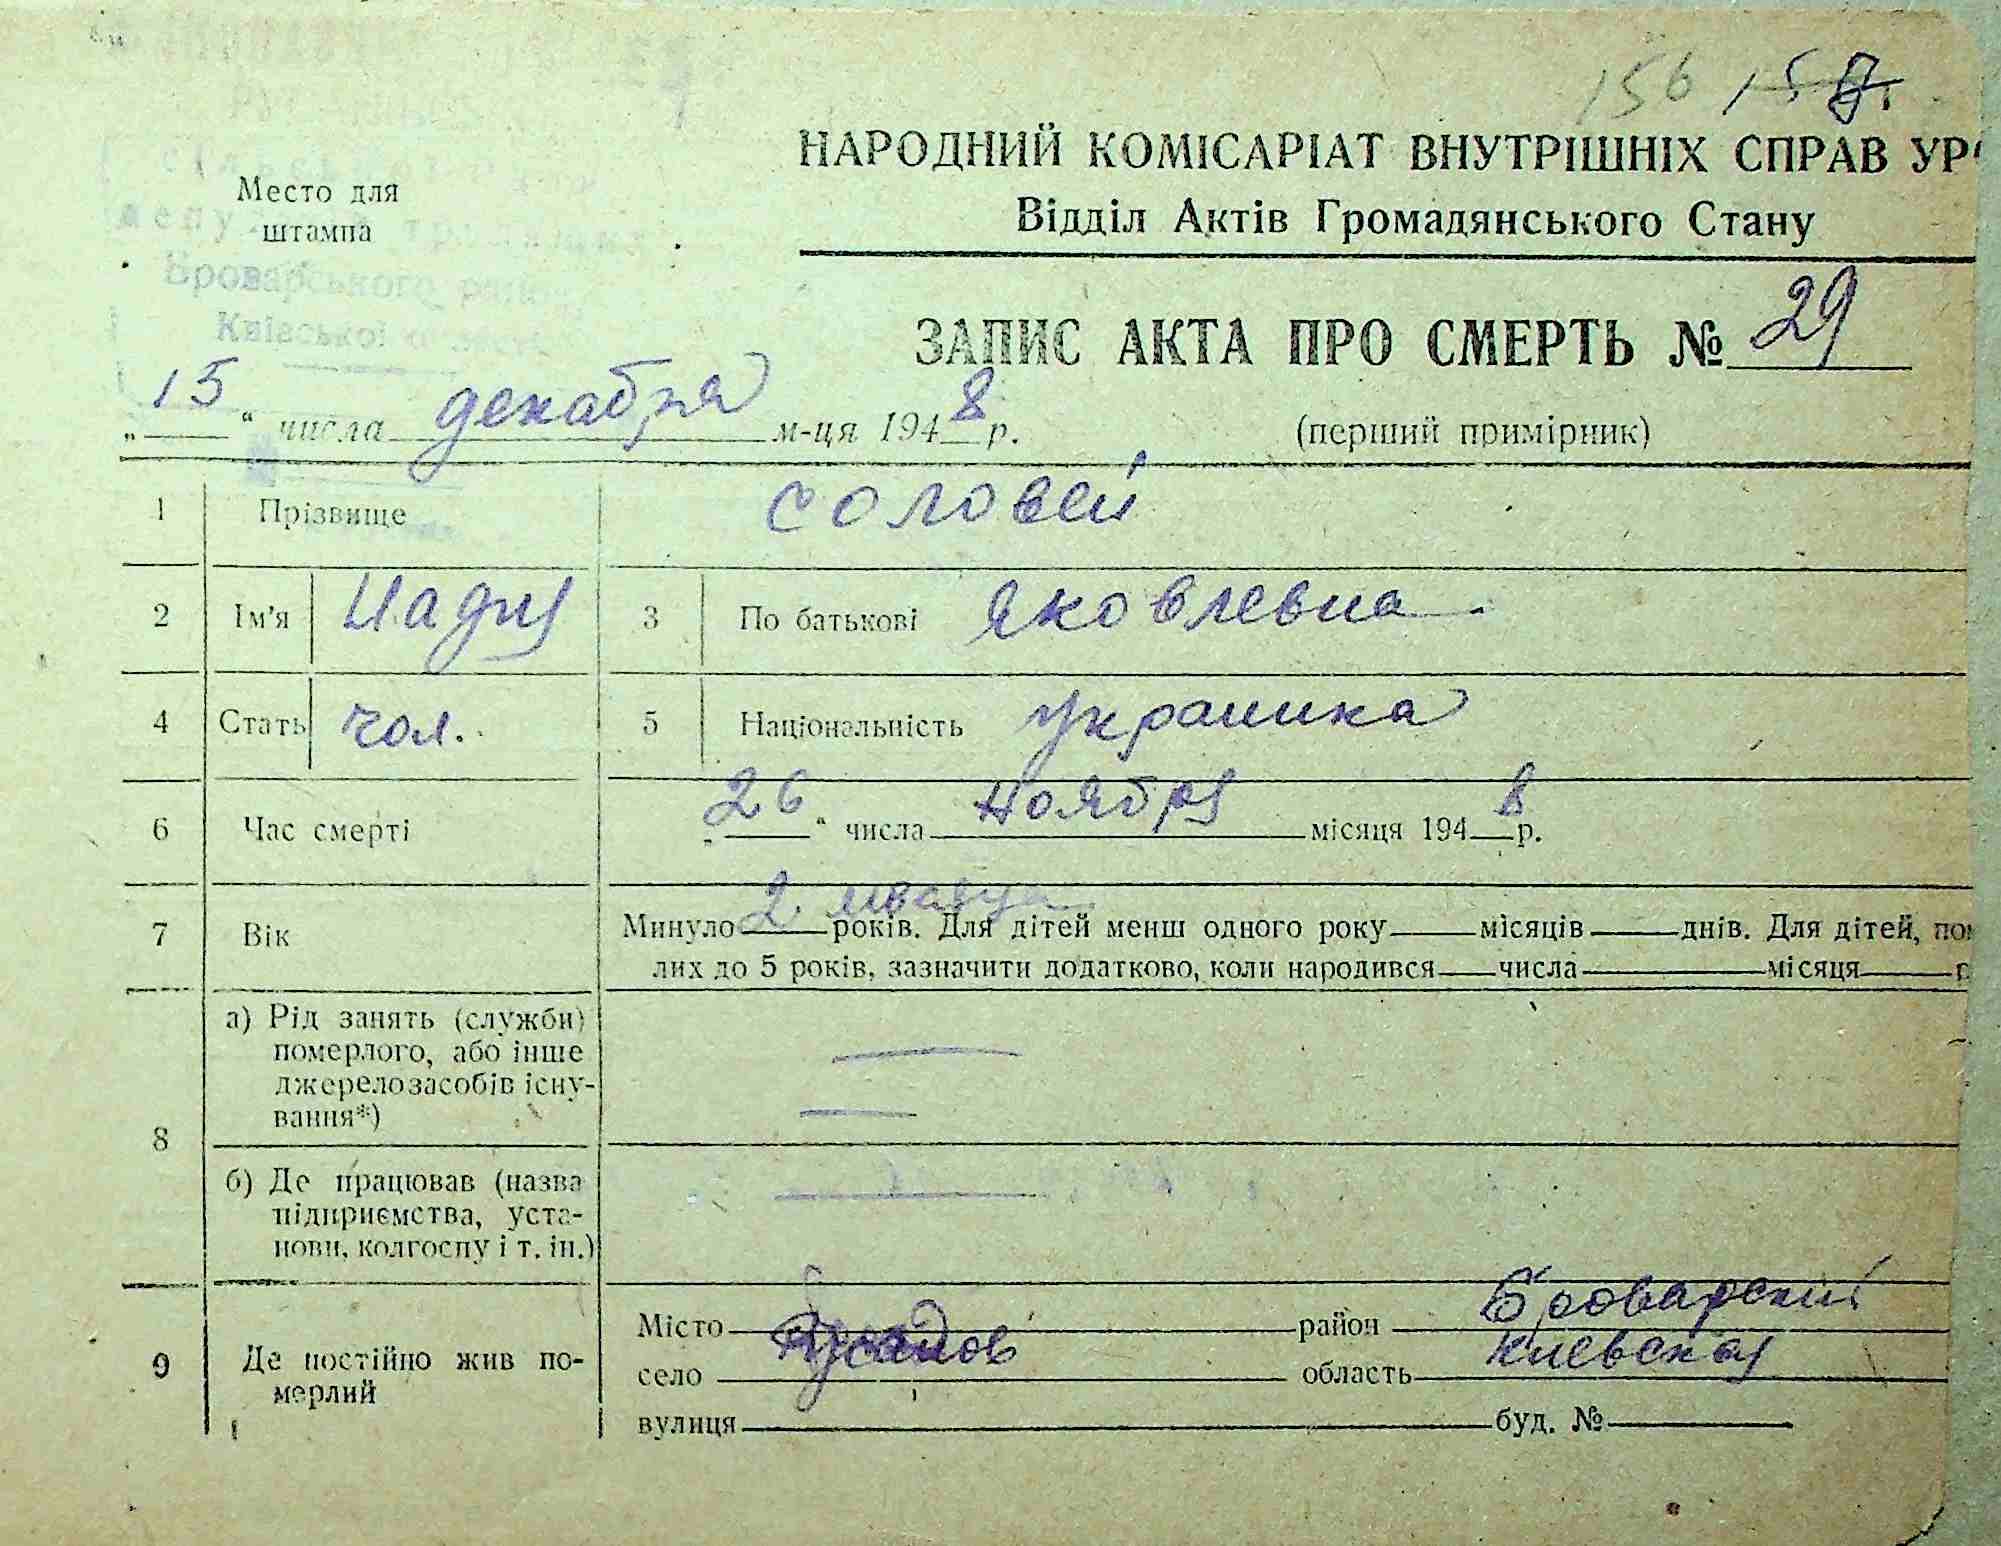 156 15
Место для
штампа
Броварського
Київської
НАРОДНИЙ КОМІСАРІАТ ВНУТРІШНІХ СПРАВ УР
Відділ Актів Громадянського Стану
ЗАПИС АКТА ПРО СМЕРТЬ № 29
„15“ числа декабря м-ця 1948 р.
(перший примірник)
1 Прізвище соловей
2 Ім'я Надя 3 По батькові Яковлевна
4 Стать чол. 5 Національність украинка
6 Час смерті „26“ числа ноября місяця 1948 р.
7 Вік Минуло 2 років. Для дітей менш одного року місяців днів. Для дітей, пом
лих до 5 років, зазначити додатково, коли народився числа місяця р
8 а) Рід занять (служби)
померлого, або інше
джерело засобів існу-
вання*)
б) Де працював (назва
підприємства, уста-
нови, колгоспу і т. ін.)
9 Де постійно жив по-
мерлий
Місто район Броварский
село Русанов область Киевская
вулиця буд. №